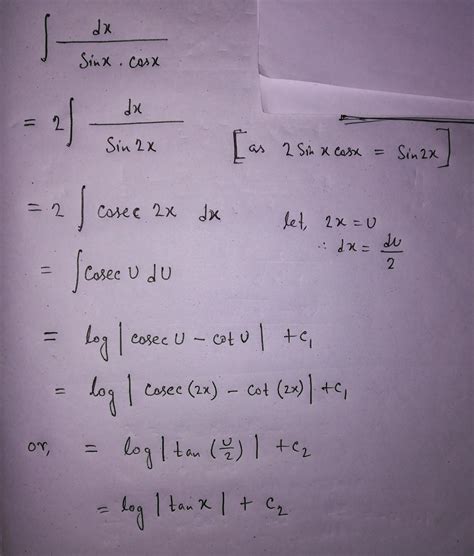 ∫ dx / Sinx . cosx
= 2∫ dx / Sin 2x [as 2 Sin x cosx = Sin2x]
= 2 ∫ cosec 2x dx let, 2x = U
∴ dx = du/2
= ∫ Cosec U dU
= log | cosec U - cot U | + c₁
= log | Cosec (2x) - cot (2x) | + c₁
or, = log | tan (U/2) | + c₂
= log | tan x | + c₂